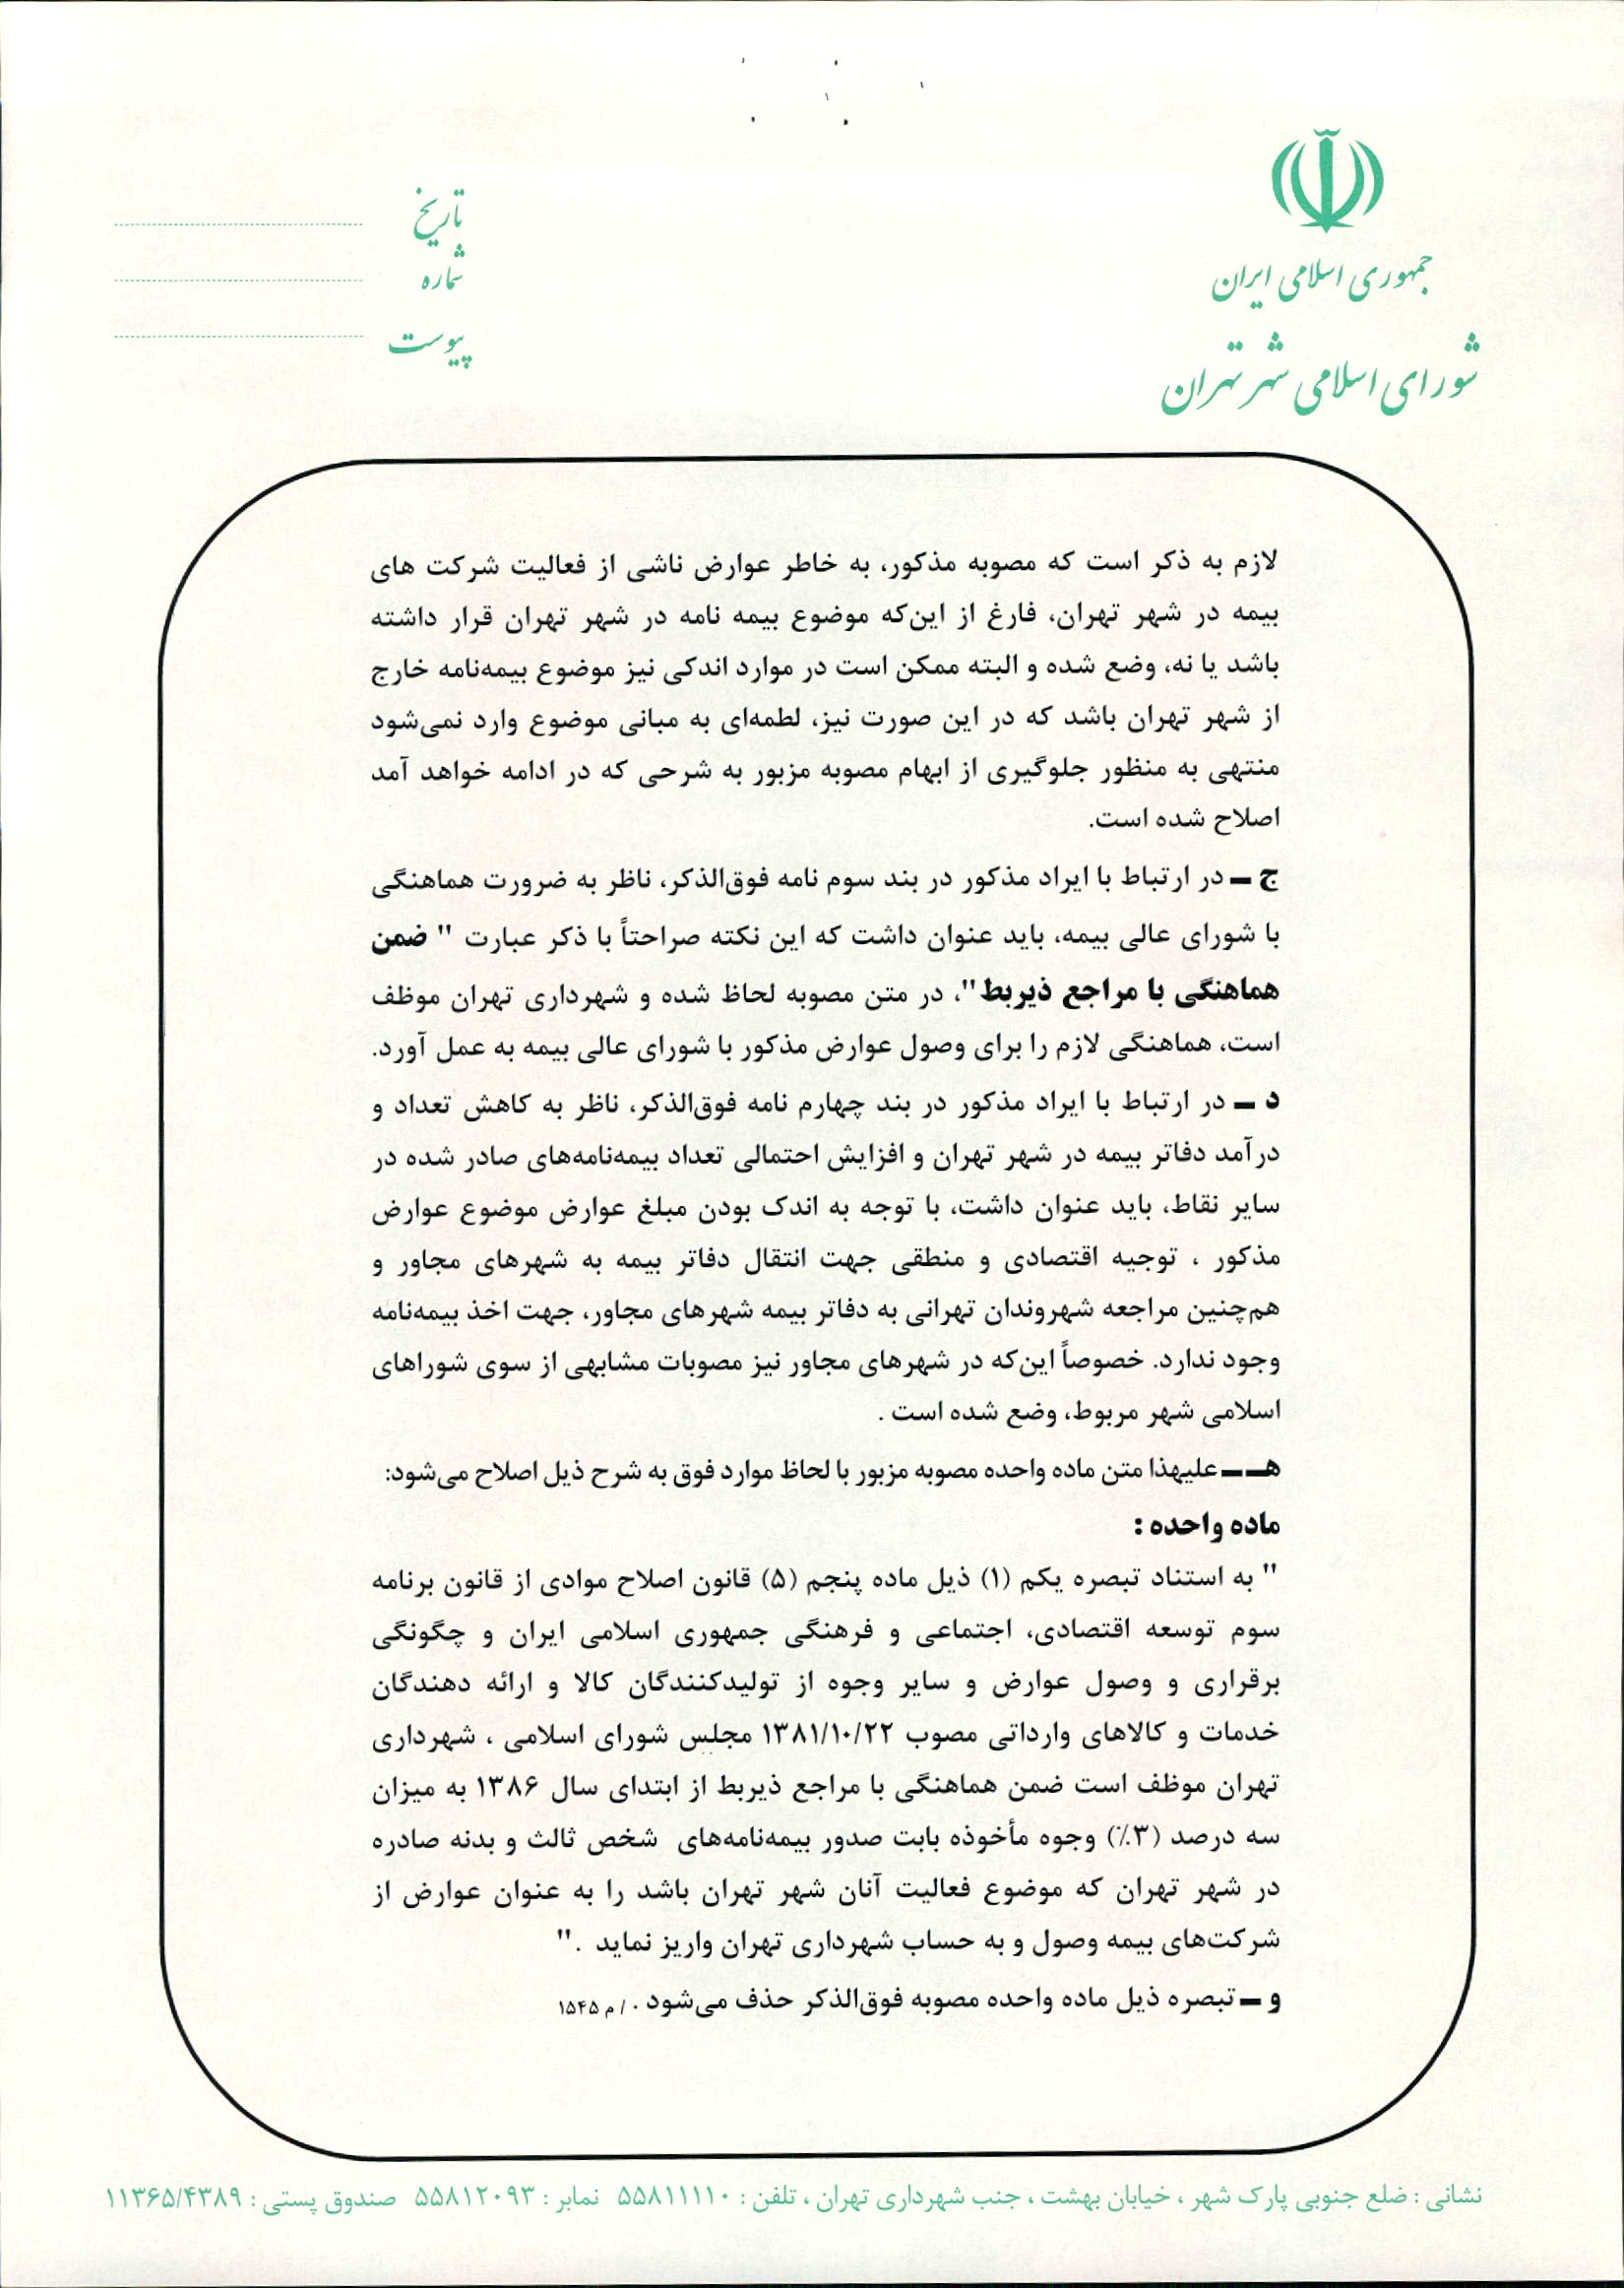 جمهوری اسلامی ایران
شورای اسلامی شهر تهران
تاریخ
شماره
پیوست
لازم به ذکر است که مصوبه مذکور، به خاطر عوارض ناشی از فعالیت شرکت های
بیمه در شهر تهران، فارغ از این‌که موضوع بیمه نامه در شهر تهران قرار داشته
باشد یا نه، وضع شده و البته ممکن است در موارد اندکی نیز موضوع بیمه‌نامه خارج
از شهر تهران باشد که در این صورت نیز، لطمه‌ای به مبانی موضوع وارد نمی‌شود
منتهی به منظور جلوگیری از ابهام مصوبه مزبور به شرحی که در ادامه خواهد آمد
اصلاح شده است.
ج ـ در ارتباط با ایراد مذکور در بند سوم نامه فوق‌الذکر، ناظر به ضرورت هماهنگی
با شورای عالی بیمه، باید عنوان داشت که این نکته صراحتاً با ذکر عبارت " ضمن
هماهنگی با مراجع ذیربط"، در متن مصوبه لحاظ شده و شهرداری تهران موظف
است، هماهنگی لازم را برای وصول عوارض مذکور با شورای عالی بیمه به عمل آورد.
د ـ در ارتباط با ایراد مذکور در بند چهارم نامه فوق‌الذکر، ناظر به کاهش تعداد و
درآمد دفاتر بیمه در شهر تهران و افزایش احتمالی تعداد بیمه‌نامه‌های صادر شده در
سایر نقاط، باید عنوان داشت، با توجه به اندک بودن مبلغ عوارض موضوع عوارض
مذکور ، توجیه اقتصادی و منطقی جهت انتقال دفاتر بیمه به شهرهای مجاور و
هم‌چنین مراجعه شهروندان تهرانی به دفاتر بیمه شهرهای مجاور، جهت اخذ بیمه‌نامه
وجود ندارد. خصوصاً این‌که در شهرهای مجاور نیز مصوبات مشابهی از سوی شوراهای
اسلامی شهر مربوط، وضع شده است .
هـ ـ علیهذا متن ماده واحده مصوبه مزبور با لحاظ موارد فوق به شرح ذیل اصلاح می‌شود:
ماده واحده :
" به استناد تبصره یکم (۱) ذیل ماده پنجم (۵) قانون اصلاح موادی از قانون برنامه
سوم توسعه اقتصادی، اجتماعی و فرهنگی جمهوری اسلامی ایران و چگونگی
برقراری و وصول عوارض و سایر وجوه از تولیدکنندگان کالا و ارائه دهندگان
خدمات و کالاهای وارداتی مصوب ۱۳۸۱/۱۰/۲۲ مجلس شورای اسلامی ، شهرداری
تهران موظف است ضمن هماهنگی با مراجع ذیربط از ابتدای سال ۱۳۸۶ به میزان
سه درصد (۳٪) وجوه مأخوذه بابت صدور بیمه‌نامه‌های شخص ثالث و بدنه صادره
در شهر تهران که موضوع فعالیت آنان شهر تهران باشد را به عنوان عوارض از
شرکت‌های بیمه وصول و به حساب شهرداری تهران واریز نماید ."
و ـ تبصره ذیل ماده واحده مصوبه فوق‌الذکر حذف می‌شود ./ م ۱۵۴۵
نشانی : ضلع جنوبی پارک شهر ، خیابان بهشت ، جنب شهرداری تهران ، تلفن : ۵۵۸۱۱۱۱۰ نمابر : ۵۵۸۱۲۰۹۳ صندوق پستی : ۱۱۳۶۵/۴۳۸۹